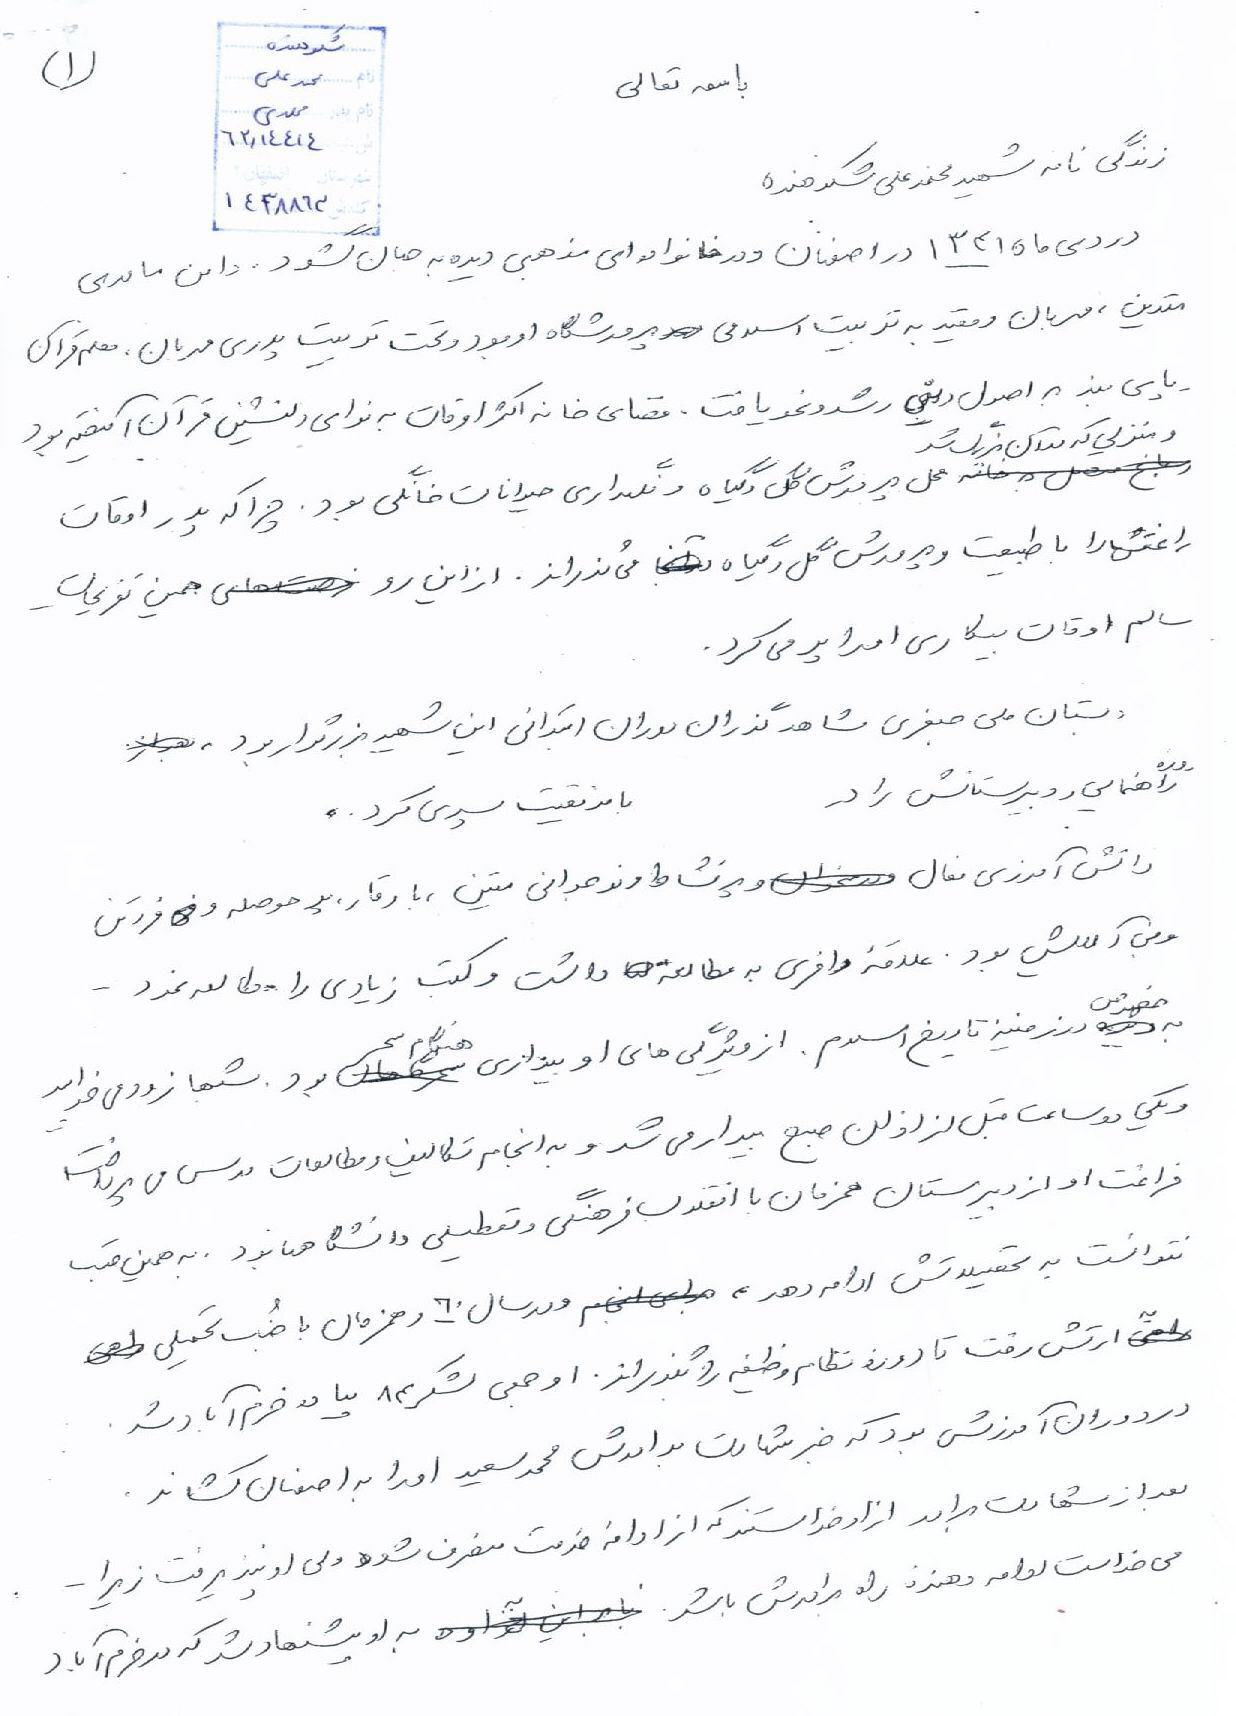 (۱)
شکوهنده
نام محمد علی
نام پدر مهدی
٦٢،١٤٤١٤
شهرستان اصفهان
کد ١٤٣٨٨٦٢
باسمه تعالی
زندگی نامه شهید محمد علی شکوهنده
در دی ماه ۱۳۴۱ در اصفهان و در خانواده ای مذهبی دیده به جهان گشود. دامن مادری
متدین، مهربان و مقید به تربیت اسلامی پرورشگاه او بود و تحت تربیت پدری مهربان، معلم قرآن
و پای بند به اصول دینی رشد و نمو یافت. فضای خانه اکثر اوقات به نوای دلنشین قرآن آمیخته بود
و منزلی که در آن بزرگ شد
محل پرورش گل و گیاه و نگهداری حیوانات خانگی بود. چرا که پدر اوقات
فراغتش را با طبیعت و پرورش گل و گیاه می گذراند. از این رو همین تفریحات
سالم اوقات بیکاری او را پر می کرد.
دبستان ملی جعفری شاهد گذران دوران ابتدائی این شهید بزرگوار بود،
دوره
راهنمایی و دبیرستانش را در با موفقیت سپری کرد.
دانش آموزی فعال و پرنشاط و نوجوانی متین، با وقار، پر حوصله و فروتن
و بی آلایش بود. علاقهٔ وافری به مطالعه داشت و کتب زیادی را مطالعه نمود -
خصوص
به در زمینهٔ تاریخ اسلام. از ویژگی های او بیداری هنگام سحر بود. شبها زود می خوابید
و یکی دو ساعت قبل از اذان صبح بیدار می شد و به انجام تکالیف و مطالعات درسی می پرداخت
فراغت او از دبیرستان همزمان با انقلاب فرهنگی و تعطیلی دانشگاهها بود. به همین جهت
نتوانست به تحصیلاتش ادامه دهد، و در سال ٦٠ و همزمان با جنگ تحمیلی
به ارتش رفت تا دوره نظام وظیفه را بگذراند. او جمعی لشکر ۸۴ پیاده خرم آباد شد.
در دوران آموزش بود که خبر شهادت برادرش محمد سعید او را به اصفهان کشاند.
بعد از شهادت برادر از او خواستند که از ادامهٔ خدمت منصرف شود ولی او نپذیرفت زیرا -
می خواست ادامه دهندهٔ راه برادرش باشد. به او پیشنهاد شد که در خرم آباد